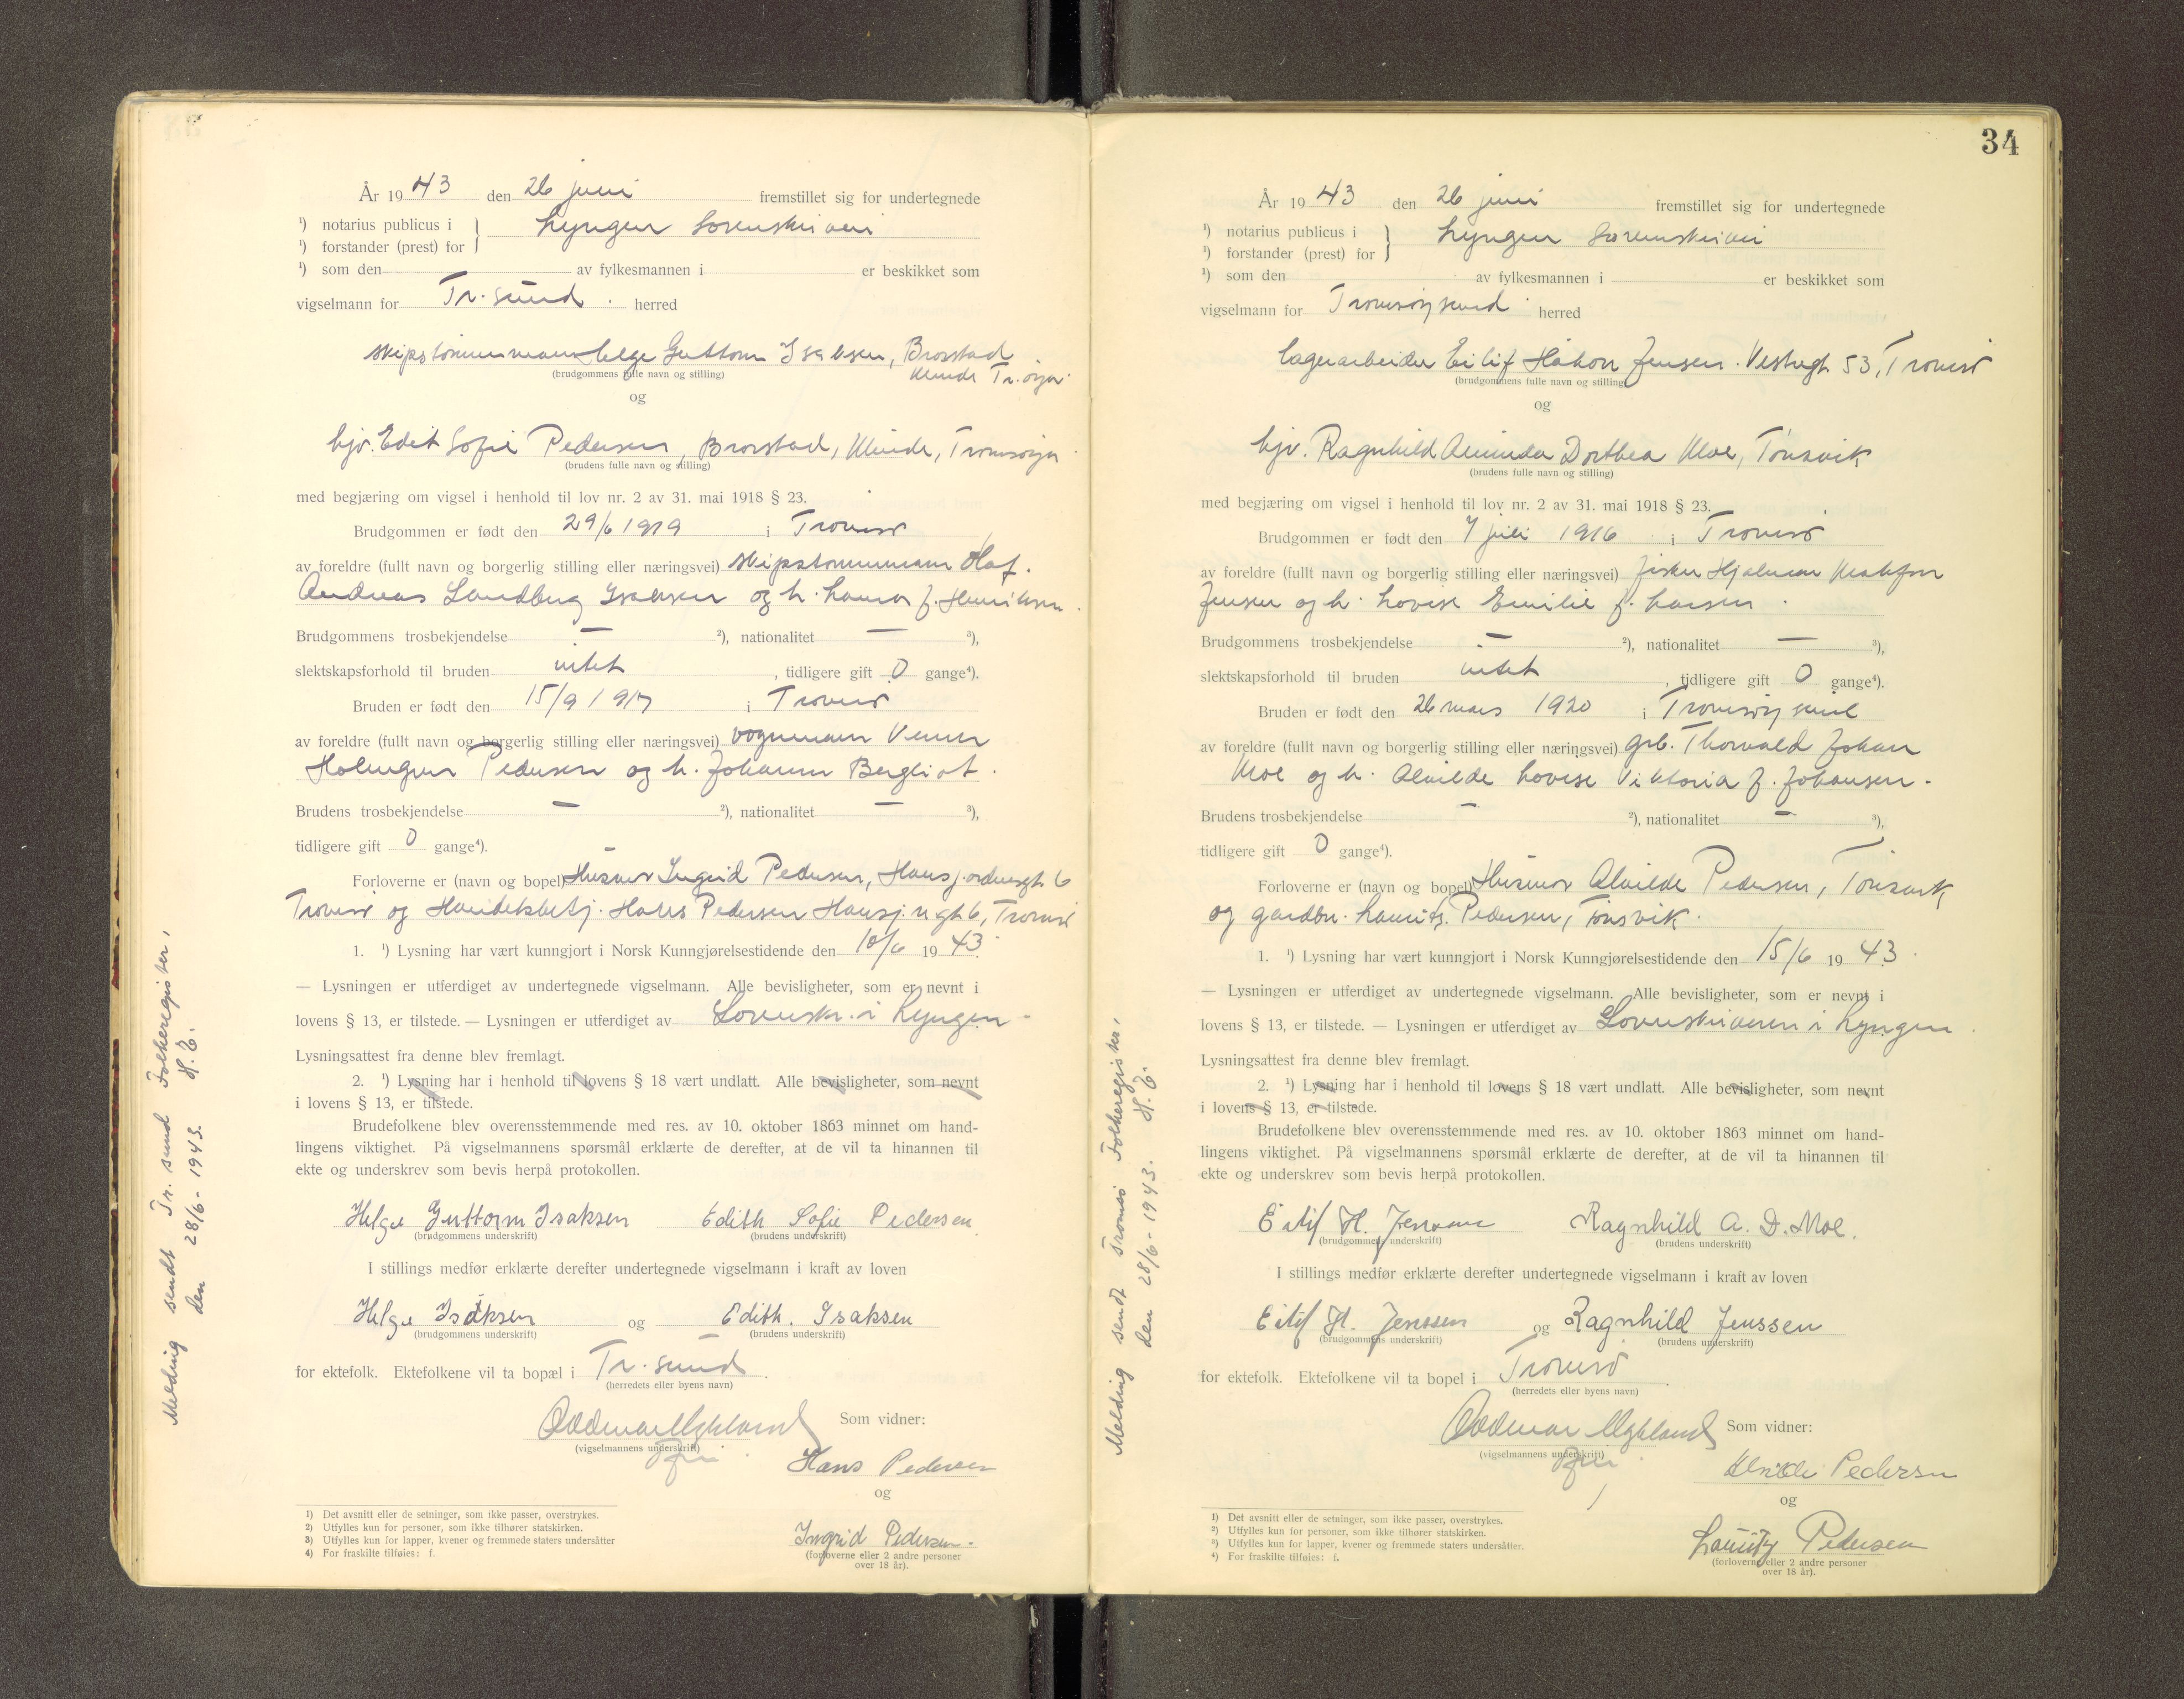 År 1943 den 26 juni fremstillet sig for undertegnede
¹) notarius publicus i } Lyngen Sorenskriveri
¹) forstander (prest) for
¹) som den av fylkesmannen i er beskikket som
vigselmann for Tr. sund. herred
skipstømmermann Helge Guttorm Isaksen, Brorstad
(brudgommens fulle navn og stilling) Tr.øya
og
hjv. Edit Sofie Pedersen, Brorstad, Tromsøya
(brudens fulle navn og stilling)
med begjæring om vigsel i henhold til lov nr. 2 av 31. mai 1918 § 23.
Brudgommen er født den 29/6 1919 i Tromsø
av foreldre (fullt navn og borgerlig stilling eller næringsvei) skipstømmermann Olaf
Andreas Sandberg Isaksen og h. f. Henriksen.
Brudgommens trosbekjendelse — ²), nationalitet — ³),
slektskapsforhold til bruden intet , tidligere gift 0 gange⁴).
Bruden er født den 15/9 1917 i Tromsø
av foreldre (fullt navn og borgerlig stilling eller næringsvei) vognmann
Holmgren Pedersen og h. Johanne Bergliot.
Brudens trosbekjendelse — ²), nationalitet — ³),
tidligere gift 0 gange⁴).
Forloverne er (navn og bopel) Husmor Ingrid Pedersen, Hansjordnesgt. 6
Tromsø og Hans Pedersen Hansj.n.gt. 6, Tromsø
1. ¹) Lysning har vært kunngjort i Norsk Kunngjørelsestidende den 10/6 1943.
— Lysningen er utferdiget av undertegnede vigselmann. Alle bevisligheter, som er nevnt i
lovens § 13, er tilstede. — Lysningen er utferdiget av Sorenskr. i Lyngen.
Lysningsattest fra denne blev fremlagt.
2. ¹) Lysning har i henhold til lovens § 18 vært undlatt. Alle bevisligheter, som nevnt
i lovens § 13, er tilstede.
Brudefolkene blev overensstemmende med res. av 10. oktober 1863 minnet om hand-
lingens viktighet. På vigselmannens spørsmål erklærte de derefter, at de vil ta hinannen til
ekte og underskrev som bevis herpå protokollen.
Helge Guttorm Isaksen Edith Sofie Pedersen
(brudgommens underskrift) (brudens underskrift)
I stillings medfør erklærte derefter undertegnede vigselmann i kraft av loven
Helge Isaksen og Edith. Isaksen
(brudgommens underskrift) (brudens underskrift)
for ektefolk. Ektefolkene vil ta bopæl i Tr. sund.
(herredets eller byens navn)
Oddmar Myhland Som vidner:
(vigselmannens underskrift)
Hans Pedersen
og
Ingrid Pedersen.
(forloverne eller 2 andre personer
over 18 år).
1) Det avsnitt eller de setninger, som ikke passer, overstrykes.
2) Utfylles kun for personer, som ikke tilhører statskirken.
3) Utfylles kun for lapper, kvener og fremmede staters undersåtter
4) For fraskilte tilføies: f.
Melding sendt Tr. sund Folkeregister,
den 28/6-1943. H.E.
34
År 1943 den 26 juni fremstillet sig for undertegnede
¹) notarius publicus i } Lyngen Sorenskriveri
¹) forstander (prest) for
¹) som den av fylkesmannen i er beskikket som
vigselmann for Tromsøysund herred
lagerarbeider Eilif Håkon Jensen. Vestregt. 53, Tromsø
(brudgommens fulle navn og stilling)
og
hjv. Ragnhild Dorthea Moe, Tønsvik
(brudens fulle navn og stilling)
med begjæring om vigsel i henhold til lov nr. 2 av 31. mai 1918 § 23.
Brudgommen er født den 7 juli 1916 i Tromsø
av foreldre (fullt navn og borgerlig stilling eller næringsvei) fisker Hjalmar
Jensen og h. Lovise Emilie f. Larsen.
Brudgommens trosbekjendelse — ²), nationalitet — ³),
slektskapsforhold til bruden intet , tidligere gift 0 gange⁴).
Bruden er født den 26 mars 1920 i Tromsøysund
av foreldre (fullt navn og borgerlig stilling eller næringsvei) grb. Thorvald Johan
Moe og h. Alvilde Lovise Viktoria f. Johansen.
Brudens trosbekjendelse — ²), nationalitet — ³),
tidligere gift 0 gange⁴).
Forloverne er (navn og bopel) Husmor Alvilde Pedersen, Tønsvik
og gardbr. Lauritz Pedersen, Tønsvik.
1. ¹) Lysning har vært kunngjort i Norsk Kunngjørelsestidende den 15/6 1943.
— Lysningen er utferdiget av undertegnede vigselmann. Alle bevisligheter, som er nevnt i
lovens § 13, er tilstede. — Lysningen er utferdiget av Sorenskriveren i Lyngen.
Lysningsattest fra denne blev fremlagt.
2. ¹) Lysning har i henhold til lovens § 18 vært undlatt. Alle bevisligheter, som nevnt
i lovens § 13, er tilstede.
Brudefolkene blev overensstemmende med res. av 10. oktober 1863 minnet om hand-
lingens viktighet. På vigselmannens spørsmål erklærte de derefter, at de vil ta hinannen til
ekte og underskrev som bevis herpå protokollen.
Eilif H. Jenssen Ragnhild A. D. Moe.
(brudgommens underskrift) (brudens underskrift)
I stillings medfør erklærte derefter undertegnede vigselmann i kraft av loven
Eilif H. Jenssen og Ragnhild Jenssen
(brudgommens underskrift) (brudens underskrift)
for ektefolk. Ektefolkene vil ta bopel i Tromsø
(herredets eller byens navn)
Oddmar Myhland Som vidner:
(vigselmannens underskrift)
Alvilde Pedersen
og
Lauritz Pedersen
(forloverne eller 2 andre personer
over 18 år).
1) Det avsnitt eller de setninger, som ikke passer, overstrykes.
2) Utfylles kun for personer, som ikke tilhører statskirken.
3) Utfylles kun for lapper, kvener og fremmede staters undersåtter.
4) For fraskilte tilføies: f.
Melding sendt Tromsø Folkeregister,
den 28/6-1943. H.E.